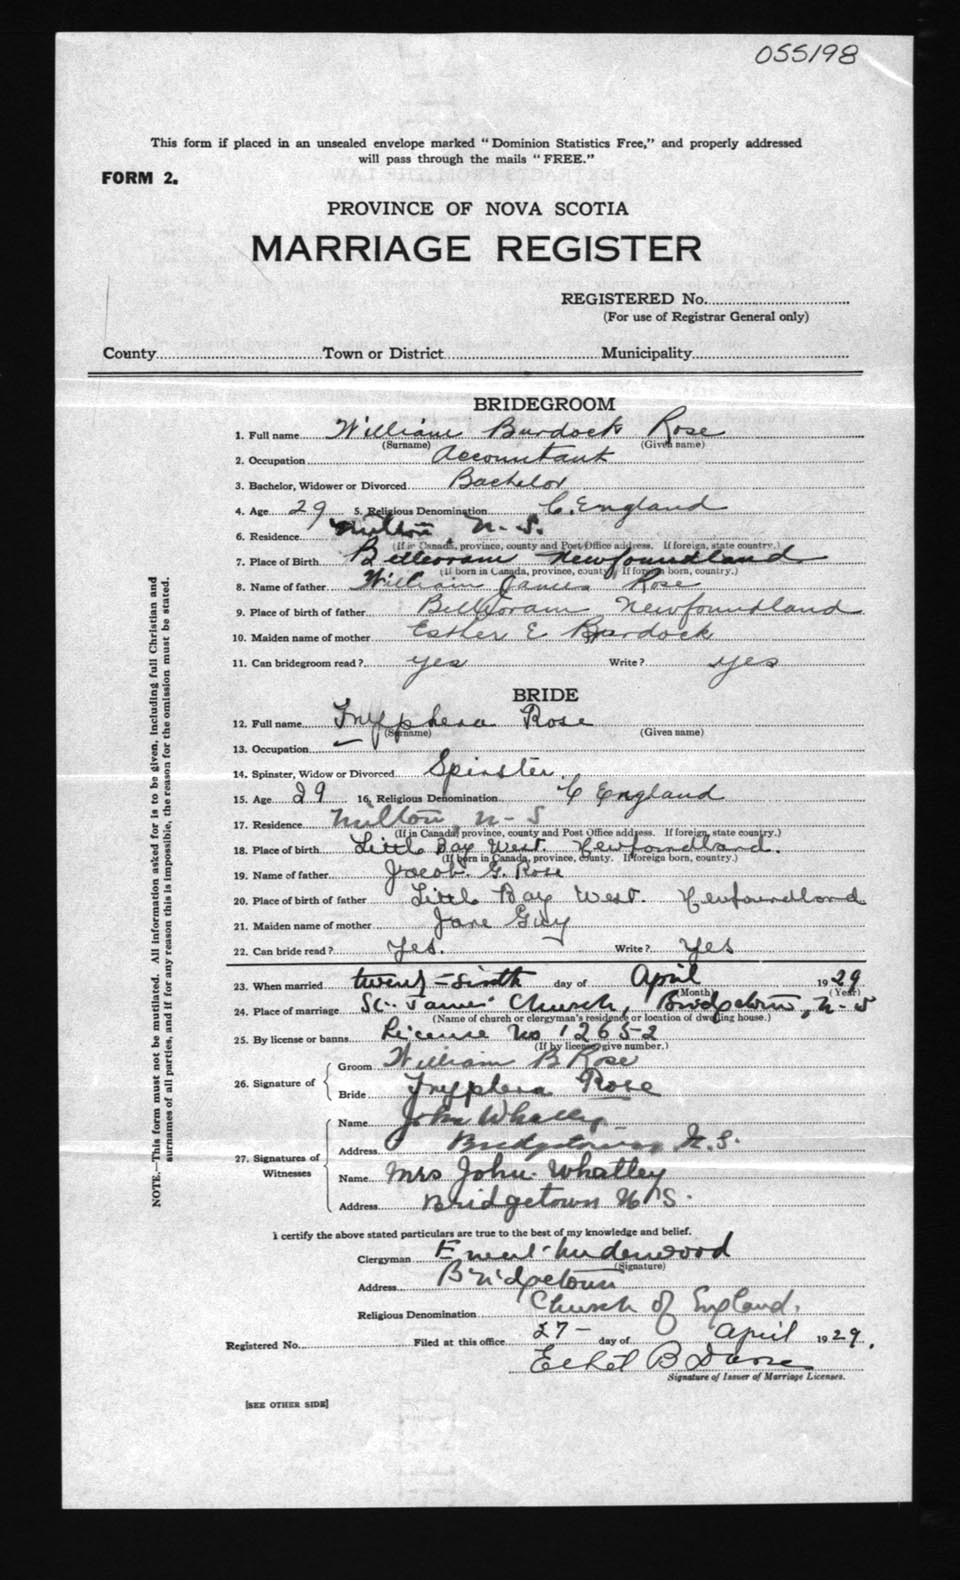 055198
This form if placed in an unsealed envelope marked "Dominion Statistics Free," and properly addressed
will pass through the mails "FREE."
FORM 2.
PROVINCE OF NOVA SCOTIA
MARRIAGE REGISTER
REGISTERED No.
(For use of Registrar General only)
County Town or District Municipality
BRIDEGROOM
1. Full name William Burdock Rose
(Surname) (Given name)
2. Occupation Accountant
3. Bachelor, Widower or Divorced Bachelor
4. Age 29 5. Religious Denomination C. England
6. Residence Milton, N.S.
(If in Canada, province, county and Post Office address. If foreign, state country.)
7. Place of Birth Belleoram Newfoundland
(If born in Canada, province, county. If foreign born, country.)
8. Name of father William James Rose
9. Place of birth of father Belleoram Newfoundland
10. Maiden name of mother Esther E Burdock
11. Can bridegroom read? yes Write? yes
BRIDE
12. Full name Tryphena Rose
(Surname) (Given name)
13. Occupation —
14. Spinster, Widow or Divorced Spinster.
15. Age 29 16. Religious Denomination C England
17. Residence Milton, N-S
(If in Canada, province, county and Post Office address. If foreign, state country.)
18. Place of birth Little Bay West. Newfoundland.
(If born in Canada, province, county. If foreign born, country.)
19. Name of father Jacob. G. Rose
20. Place of birth of father Little Bay West. Newfoundland
21. Maiden name of mother Jane Guy
22. Can bride read? Yes. Write? Yes
23. When married twenty-sixth day of April 1929
(Month) (Year)
24. Place of marriage St. James' Church, Bridgetown, N-S
(Name of church or clergyman's residence or location of dwelling house.)
25. By license or banns License No 12652
(If by license give number.)
26. Signature of
Groom William B Rose
Bride Tryphena Rose
27. Signatures of Witnesses
Name John Whatley
Address Bridgetown, N.S.
Name Mrs John Whatley
Address Bridgetown N S.
I certify the above stated particulars are true to the best of my knowledge and belief.
Clergyman Underwood
(Signature)
Address Bridgetown
Religious Denomination Church of England.
Registered No. Filed at this office 27 - day of April 1929.
Ethel B
Signature of Issuer of Marriage Licenses.
[SEE OTHER SIDE]
NOTE.—This form must not be mutilated. All information asked for is to be given, including full Christian and
surnames of all parties, and if for any reason this is impossible, the reason for the omission must be stated.